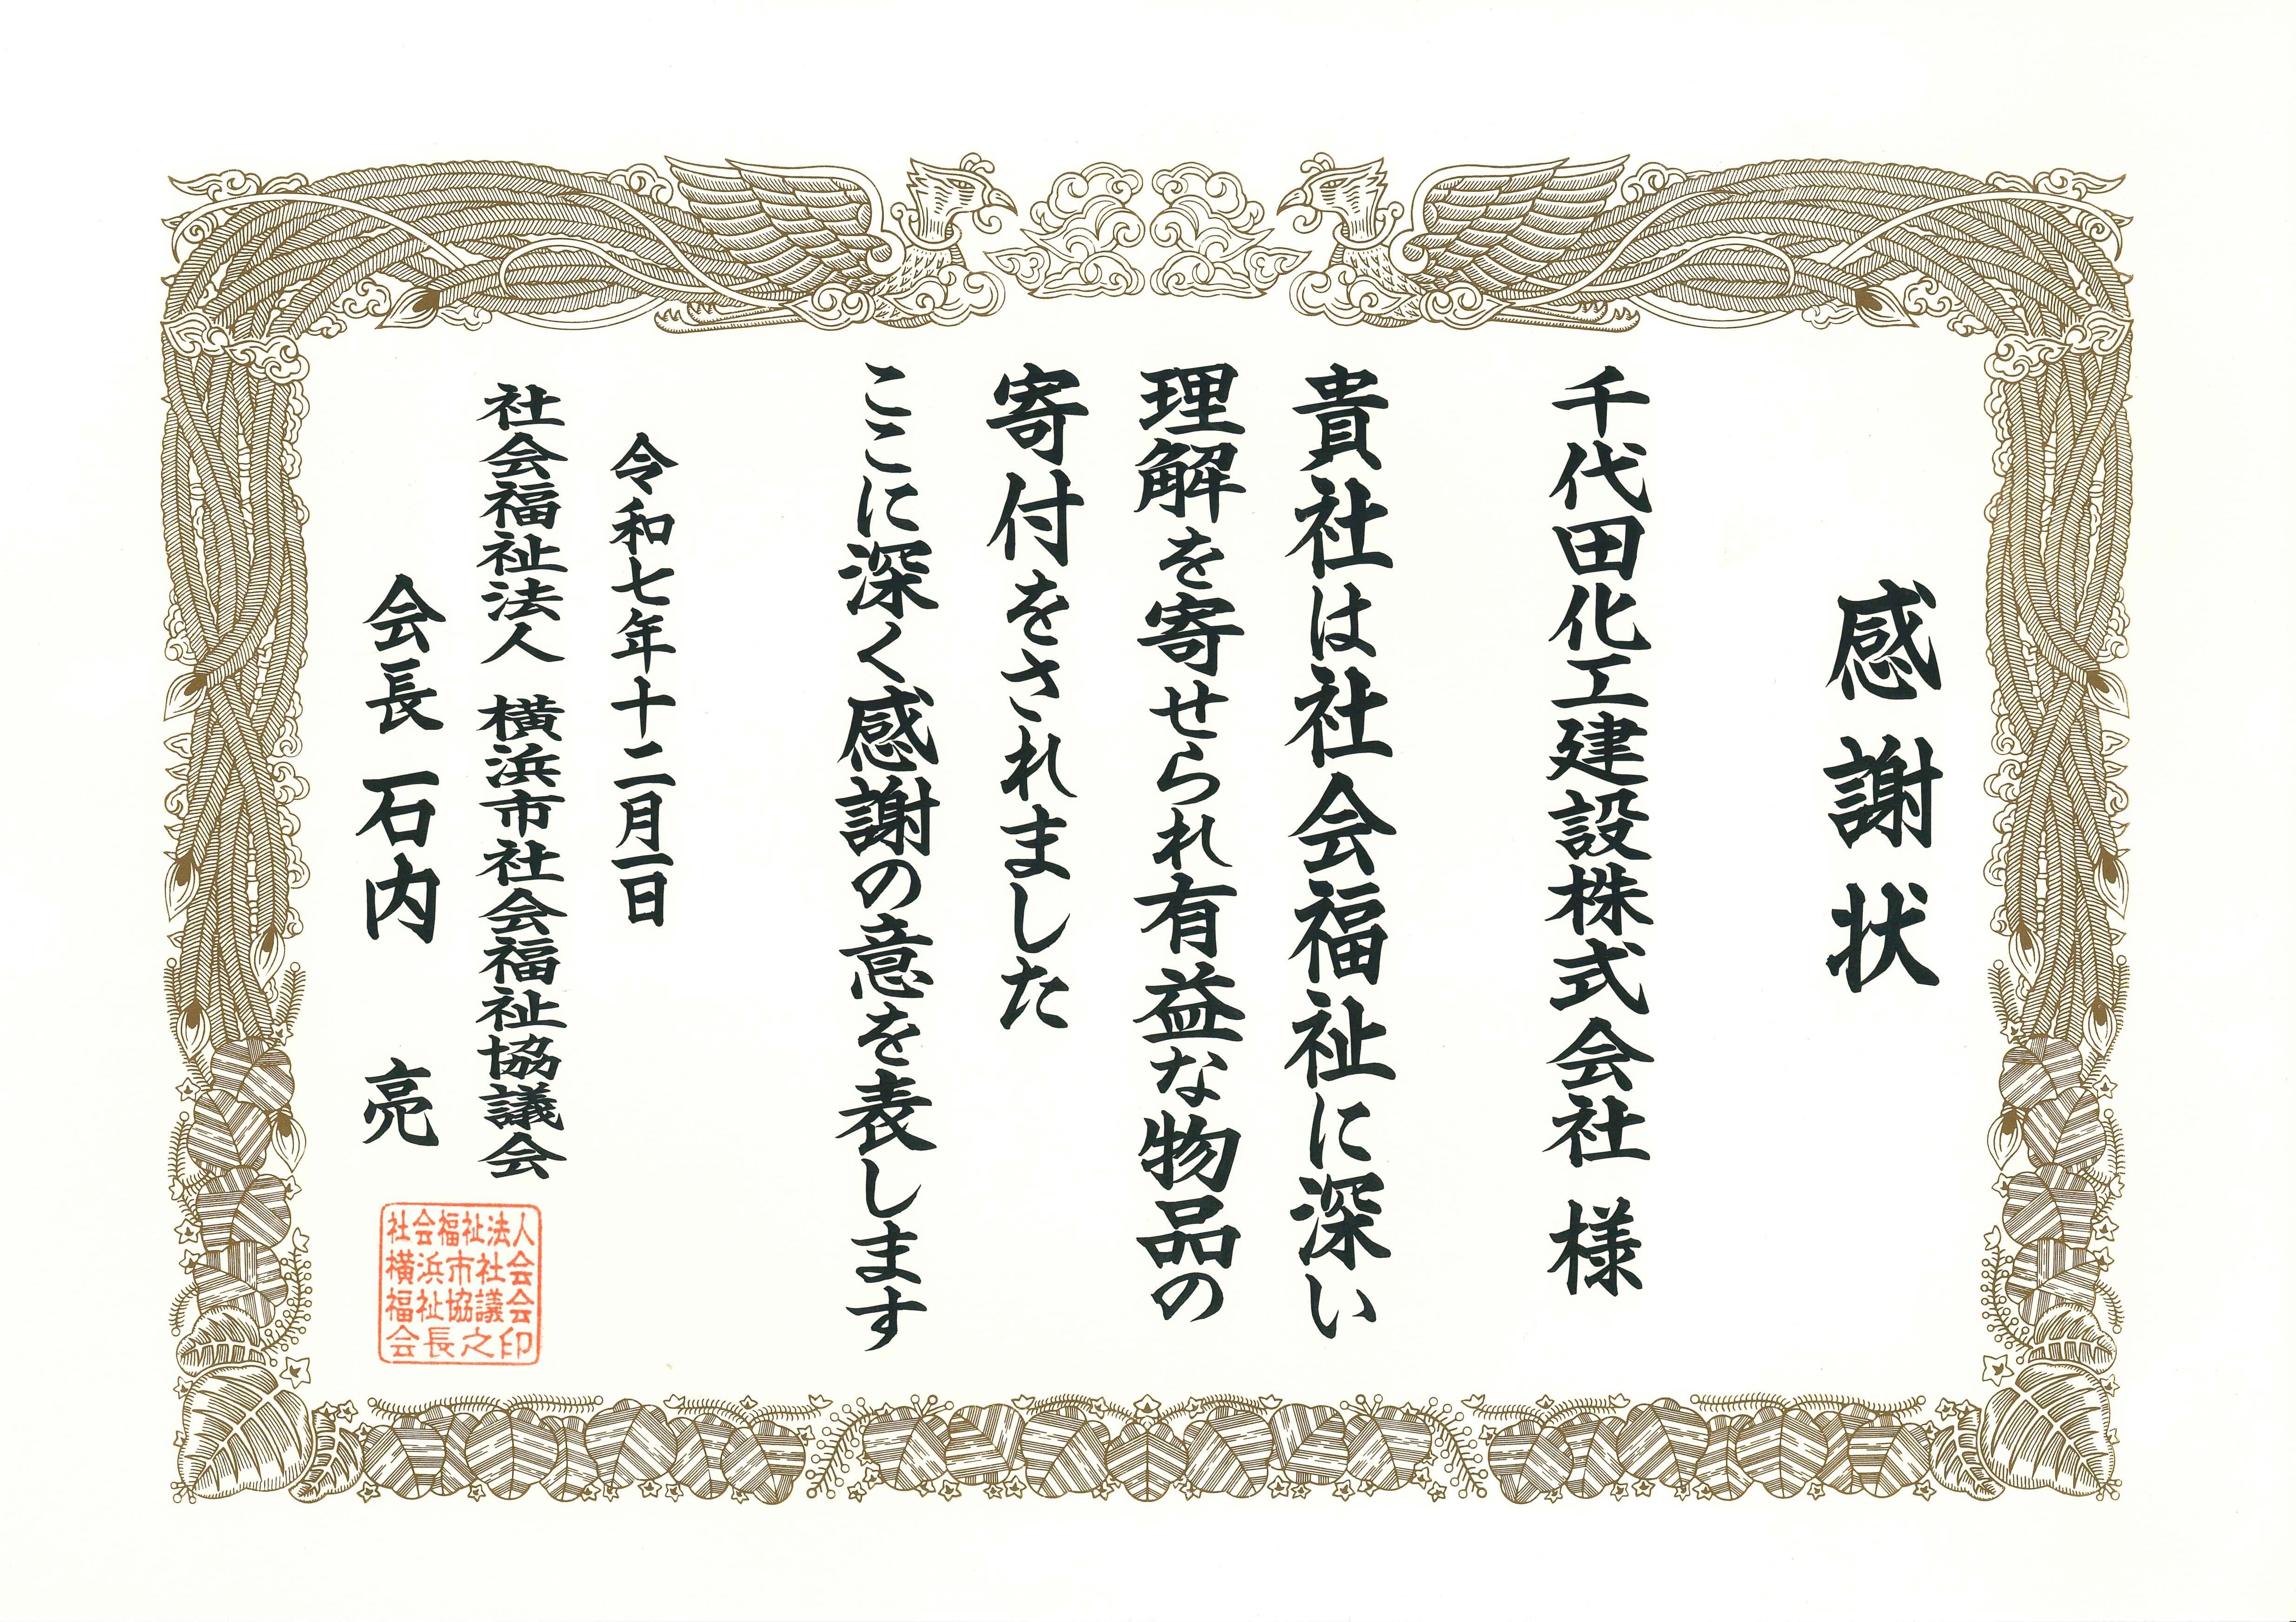 感謝状
千代田化工建設株式会社 様
貴社は社会福祉に深い
理解を寄せられ有益な物品の
寄付をされました
ここに深く感謝の意を表します
令和七年十二月一日
社会福祉法人 横浜市社会福祉協議会
会長 石内 亮
社会福祉法人
横浜市社会
福祉協議会
会長之印